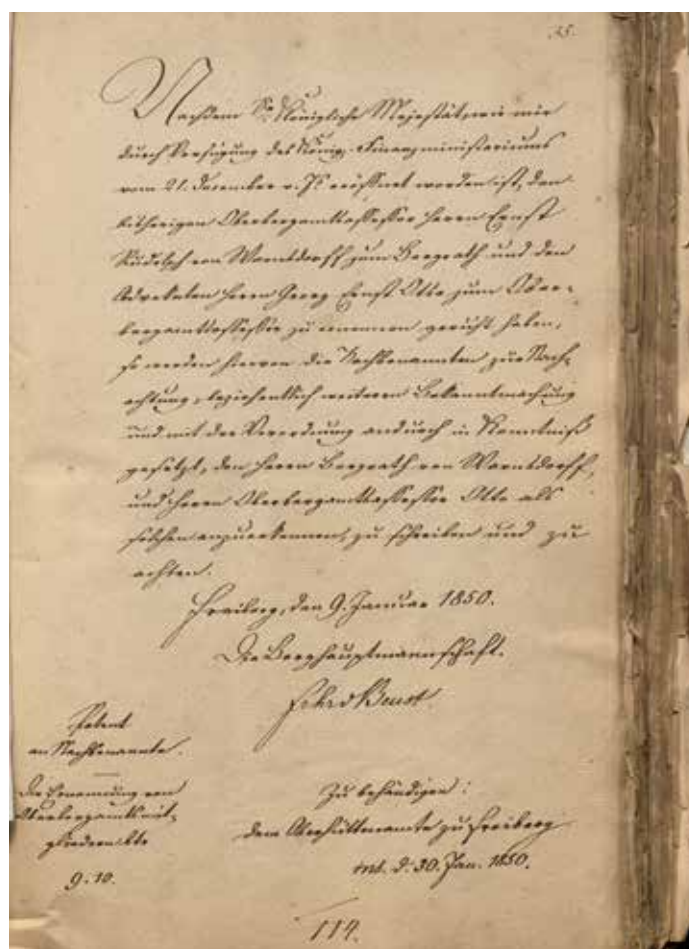 35.
Nachdem Se. Königliche Majestät, wie mir
durch Verfügung des Königl. Finanzministeriums
vom 21. Dezember v. Js. eröffnet worden ist, den
bisherigen Oberbergamtsassessor Herrn Ernst
Rudolph von Warnsdorff zum Bergrath und den
Advokaten Herrn Georg Ernst Otto zum Ober-
bergamtsassessor zu ernennen geruht haben,
so werden hiervon die Nachbenannten zur Nach-
achtung, beziehentlich weiteren Bekanntmachung
und mit der Verordnung andurch in Kenntniß
gesetzt, den Herrn Bergrath von Warnsdorff,
und Herrn Oberbergamtsassessor Otto als
solchen anzuerkennen, zu schreiben und zu
achten.
Freiberg, den 9. Januar 1850.
Die Berghauptmannschaft.
Frhr v Beust
Patent
an Nachbenannte.
Die Ernennung von
Oberbergamtsmit-
gliedern btr
9.10.
Zu behändigen:
dem Oberhüttenamte zu Freiberg
d. 30. Jan. 1850.
114.